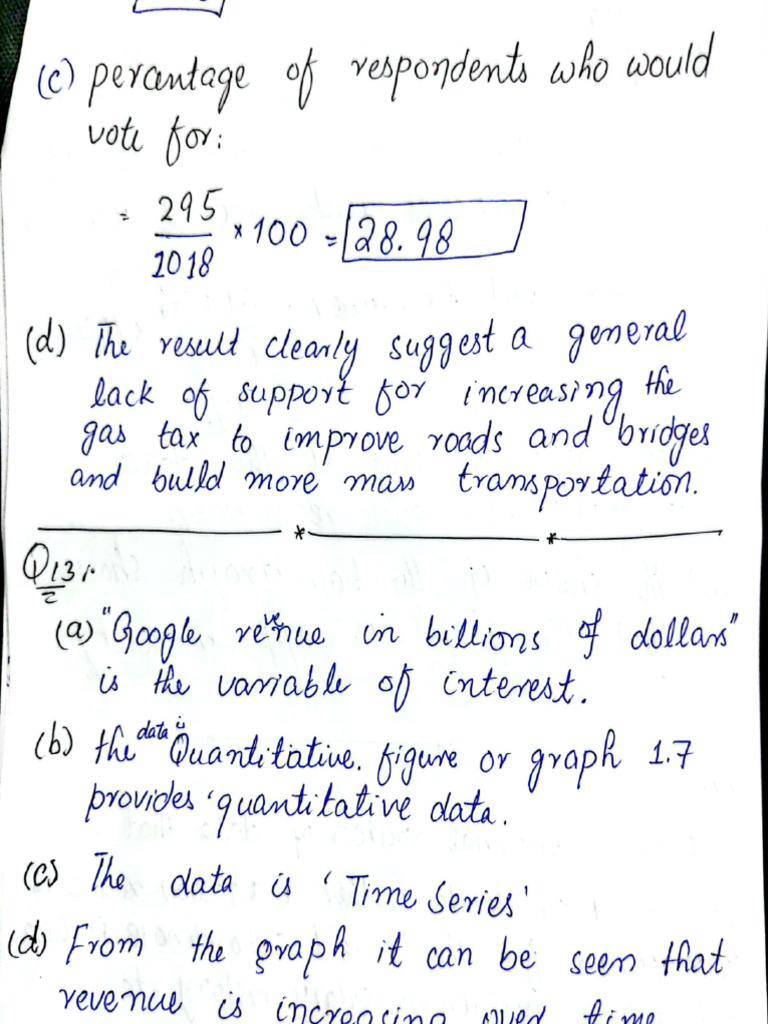 (c) percentage of respondents who would
vote for:
= 295/1018 × 100 = 28.98
(d) The result clearly suggest a general
lack of support for increasing the
gas tax to improve roads and bridges
and build more mass transportation.
Q13.
(a) "Google revenue in billions of dollars"
is the variable of interest.
(b) the data is Quantitative. figure or graph 1.7
provides 'quantitative data.
(c) The data is 'Time Series'
(d) From the graph it can be seen that
revenue is increasing over time